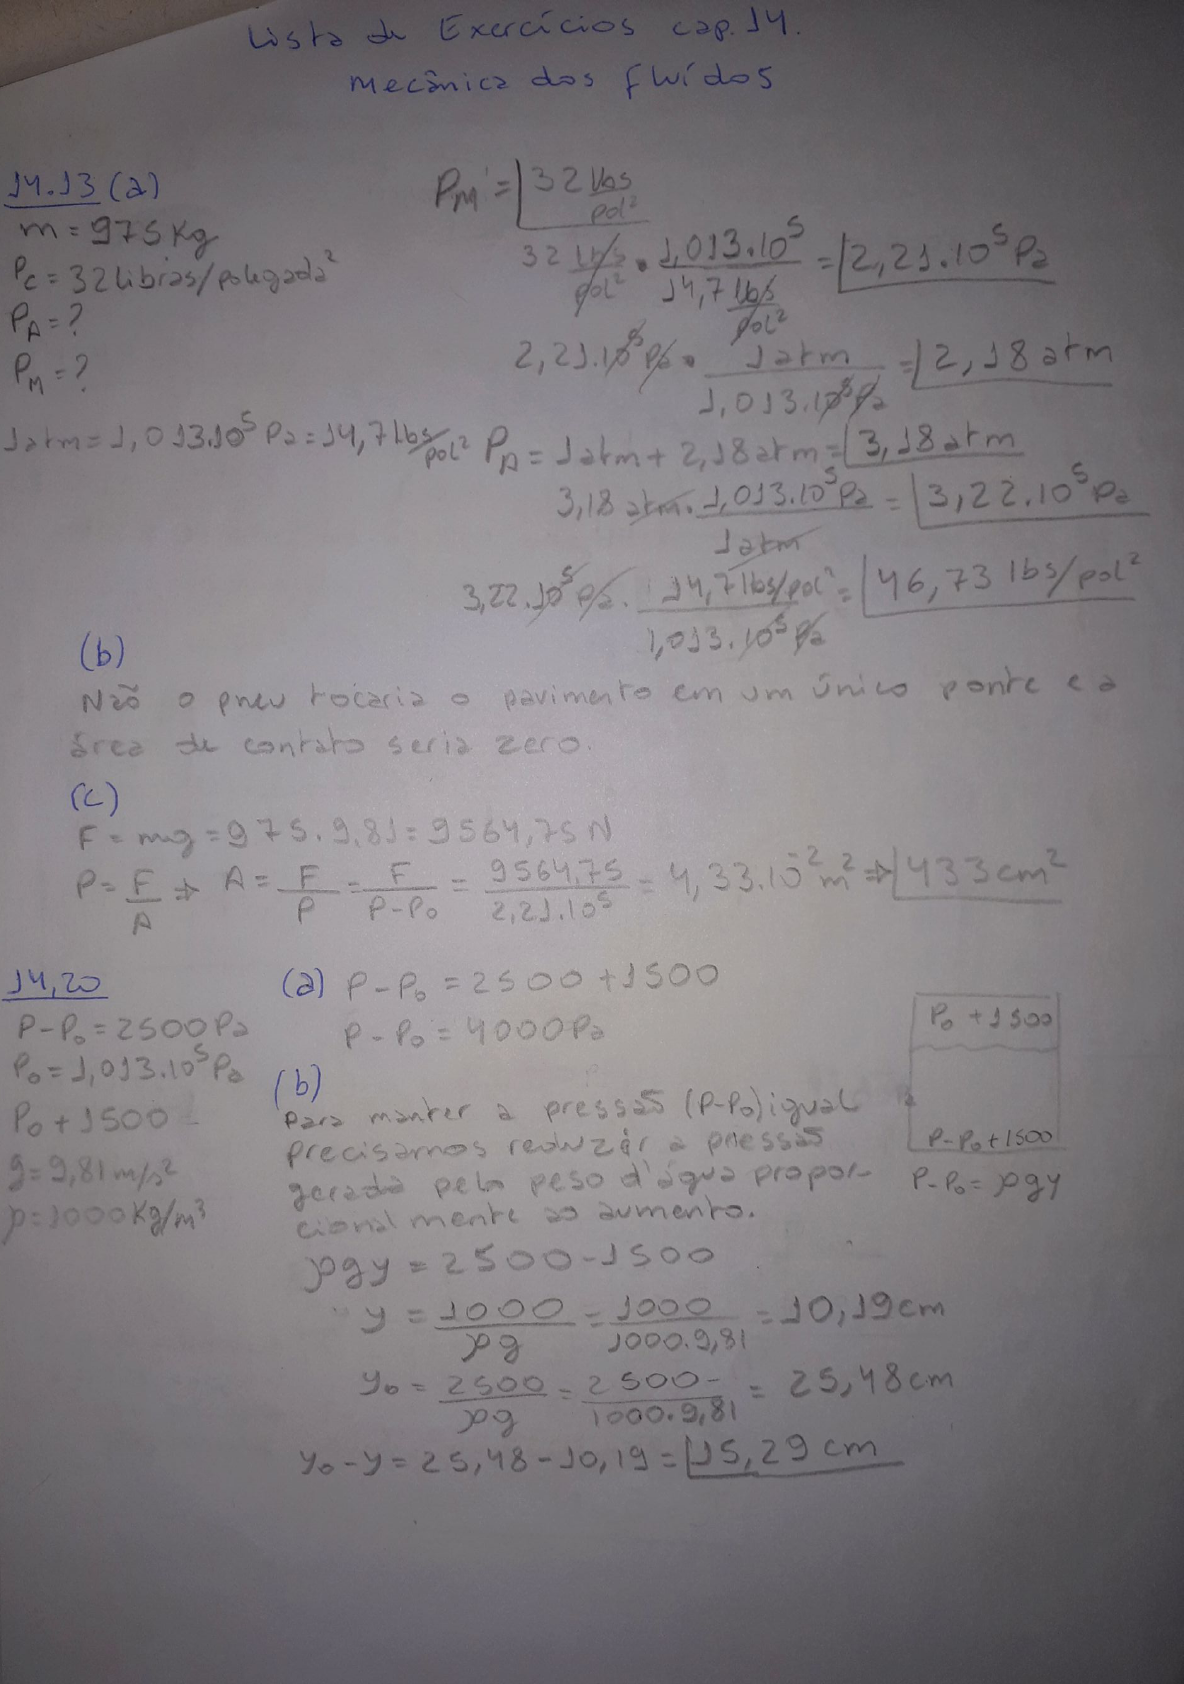 Lista de Exercícios cap. 14.
Mecânica dos fluídos
14.13 (a)
m = 975 Kg
Pc = 32 libras/polegada²
PA = ?
PM = ?
1atm = 1,013.10⁵ Pa = 14,7 lbs/pol²
PM = 32 lbs/pol²
32 lbs/pol² . 1,013.10⁵ / 14,7 lbs/pol² = 2,21.10⁵ Pa
2,21.10⁵ Pa . 1atm / 1,013.10⁵ Pa = 2,18 atm
PA = 1atm + 2,18 atm = 3,18 atm
3,18 atm . 1,013.10⁵ Pa / 1atm = 3,22.10⁵ Pa
3,22.10⁵ Pa . 14,7 lbs/pol² / 1,013.10⁵ Pa = 46,73 lbs/pol²
(b)
Não o pneu tocaria o pavimento em um único ponte e a
área de contato seria zero.
(c)
F = mg = 975 . 9,81 = 9564,75 N
P = F/A ⇒ A = F/P = F/P-P₀ = 9564,75 / 2,21.10⁵ = 4,33.10⁻² m² ⇒ 433 cm²
14,20
P-P₀ = 2500 Pa
P₀ = 1,013.10⁵ Pa
P₀ + 1500
g = 9,81 m/s²
ρ = 1000 Kg/m³
(a) P-P₀ = 2500 + 1500
P-P₀ = 4000 Pa
P₀ + 1500
P-P₀ + 1500
P-P₀ = ρgy
(b)
Para manter a pressão (P-P₀) igual
precisamos reduzir a pressão
gerada pelo peso d'água propor-
cionalmente ao aumento.
ρgy = 2500 - 1500
y = 1000 / ρg = 1000 / 1000.9,81 = 10,19 cm
y₀ = 2500 / ρg = 2500 / 1000.9,81 = 25,48 cm
y₀ - y = 25,48 - 10,19 = 15,29 cm